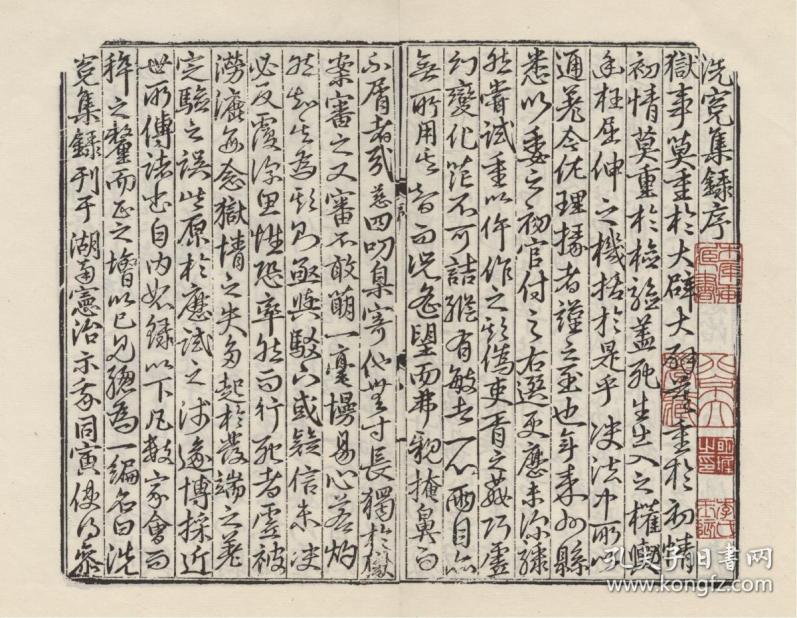 洗冤集録序
獄事莫重於大辟大辟莫重於初情
初情莫重於檢驗蓋死生出入之權輿
幽枉屈伸之機括於是乎決法中所以
通差今佐理掾者謹之至也年来州縣
悉以委之初官付之右選更歷未深驟
然嘗試重以仵作之欺僞吏胥之姦巧虛
幻變化茫不可詰縱有敏者一心兩目亦
無所用其智而况遥望而弗親掩鼻而
不屑者哉慈四叨臬寄他無寸長獨於獄
案審之又審不敢萌一毫慢易心若灼
然知其爲欺則亟與駁下或疑信未決
必反覆深思惟恐率然而行死者虛被
澇漉每念獄情之失多起於發端之差
定驗之誤皆原於歷試之淺遂博採近
世所傳諸書自内恕録以下凡數家會而
稡之釐而正之增以己見總爲一編名曰洗
冤集録刊于湖南憲治示我同寅使得參
孔夫子旧书网
www.kongfz.com